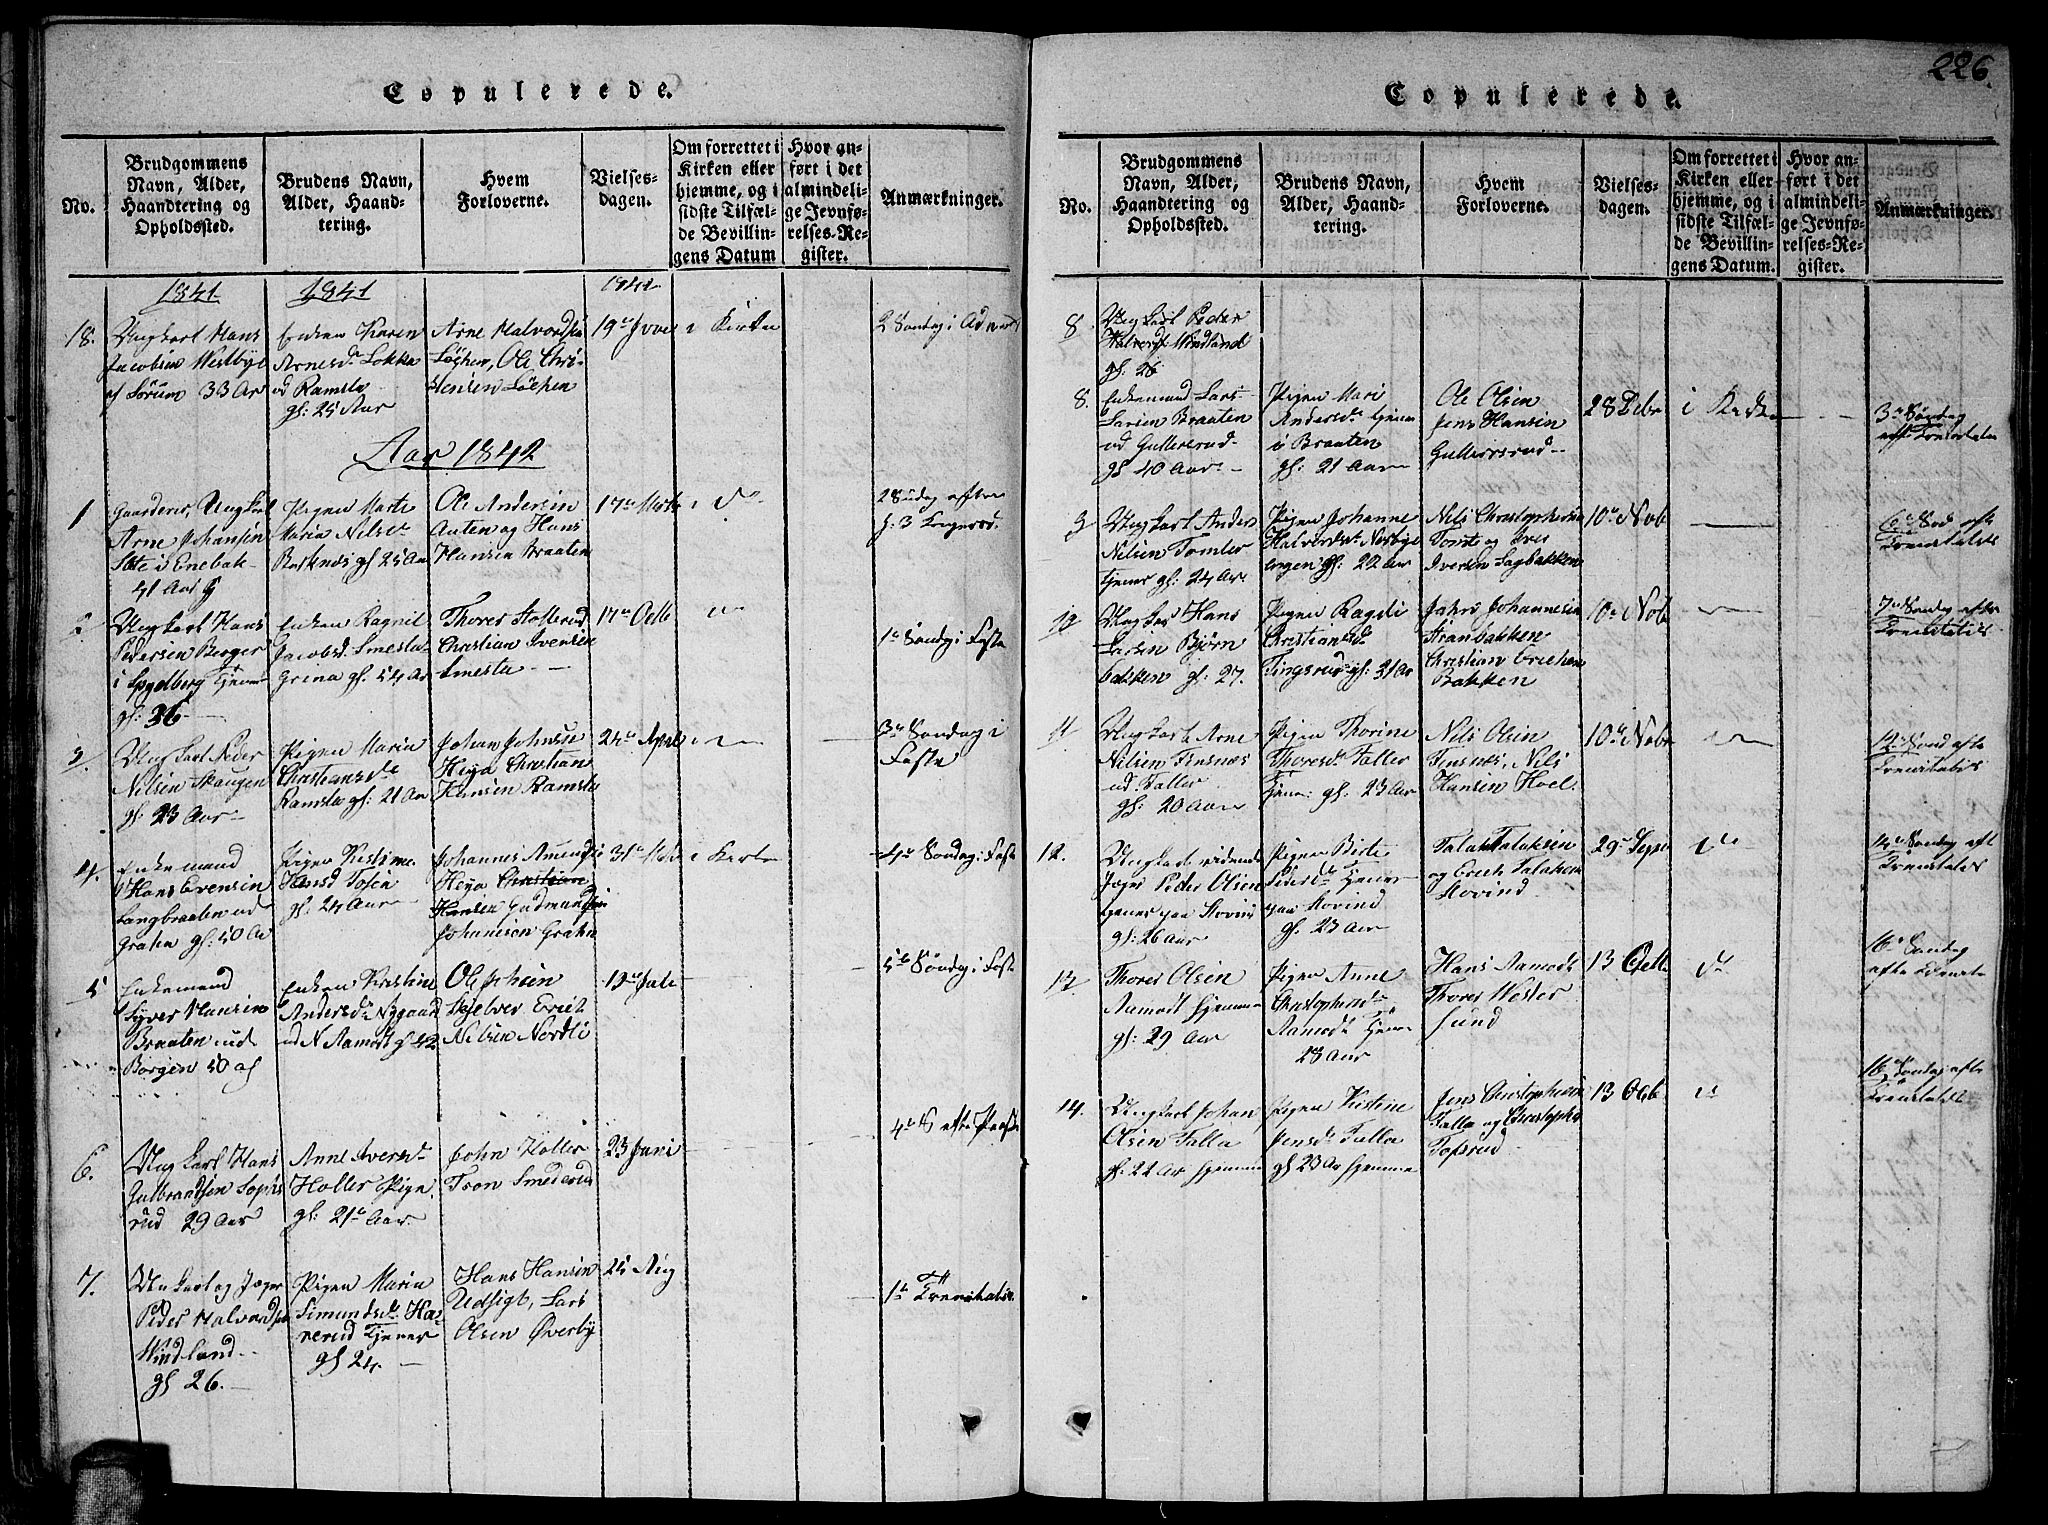 226
Copulerede.
No.
Brudgommens Navn, Alder, Haandtering og Opholdssted.
Brudens Navn, Alder, Haandtering.
Hvem Forloverne.
Vielsesdagen.
Om forrettet i Kirken eller hjemme, og i sidste Tilfælde Bevillingens Datum
Hvor anført i det almindelige Jevnførelses-Register.
Anmærkninger.
1841
1841
1841
18.
Ungkarl Hans
Jacobsen Westbye
af Sørum 33 Aar
Enken Karen
Arnesd. Løkka
ud Ramstø
gl: 25 Aar
Arne Halvordsen
Løchen, Ole Chri-
stensen Løchen
19de
i Kirken
2 Søndag i Advent
Aar 1842
1
Gaardener, Ungkarl
Arne Johansen
i Enebak
41 Aar
Pigen Marte
Maria Nilsd.
gl 25 Aar
Ole Andersen
Auten og Hans
Hansen Braaten
17de Marts
i do
2 Søndag efter
h: 3 Kongersd.
2
Ungkarl Hans
Pedersen Berger
i Spydeberg Tjener
gl: 36
Enken Ragnil
Jacobsd. Smestu
Grina gl. 54 Aar
Thorer Stotterud
Christian Iversen
Smestu
17de
do
1ste Søndag i Faste
3
Ungkarl Peder
Nilsen Skaugen
gl: 23 Aar
Pigen Maria
Christiansd.
Ramstø gl: 21 Aar
Johan Johnsen
Heya Christian
Hansen Ramstø
24de April
3de Søndag i
Faste
4.
Enkemand
Hans Evensen
Langbraaten ud
Grahn gl: 50 Aar
Pigen Kistine
Hansd Tosen
gl. 24 Aar
Johannes Amundsen
Heya Christian
Hansen Gudmund
Johannesen Grahn
31de
i Kirke
4de Søndag i Faste
5
Enkemand
Syver Hansen
Braaten ud
Borgen 50 aar
Enken Kristine
Andersd. Nygaard
ud N Aamodt gl 42
Ole Johsen
Skjelver Erich
Nilsen Nordli
19de Juli
5te Søndag i Faste
6.
Ungkarl Hans
Gulbrandsen Sophs-
rud 29 Aar
Anne Iversd.
Holler Pige
gl: 21 Aar.
John Holler
Tron Smederud
23 Juni
4de S efter Paaske
7.
Ungkarl og Jæger
Peder Halvordsen
Windland
gl 26.
Pigen Maria
Simundsd. Ha-
rerud Tjener
gl 24.
Hans Hansen
Udsigt, Lars
Olsen Øverby
25 Aug
1ste Trenitatis
Copulerede.
No.
Brudgommens Navn, Alder, Haandtering og Opholdssted.
Brudens Navn, Alder, Haandtering.
Hvem Forloverne.
Vielsesdagen.
Om forrettet i Kirken eller hjemme, og i sidste Tilfælde Bevillingens Datum.
Hvor anført i det almindelige Jevnførelses-Register.
Anmærkninger.
8
Ungkarl Peder
Halvords. Windland
gl. 26
8.
Enkemand Lars
Larsen Braaten
ud Gullersrud
gl 40 Aar
Pigen Mari
Andersd. tjener
i Braaten
gl: 21 Aar
Ole Olsen
Jens Hansen
Gullersrud
28
i Kirken
3de Søndag
eft Trenitatis
9
Ungkarl Anders
Nilsen Tomter
tjener gl: 24 Aar
Pigen Johanne
Halvordsd. Norbye
gl: 22 Aar
Nils Christophersen
Tomte og Iver
Iversen Sagbakken
10de Nobr
6te Sød eft
Trenitatis
10
Ungkar Hans
Larsen Bjørn
bakken gl: 27.
Pigen Ragdi
Christiansd.
Tingsrud gl: 31 Aar
Johannesen
Stranbakken
Christian Erichsen
Bakken
10de Nobr
7de Søndag efter
Trenitatis
11
Ungkarl Arne
Nilsen Finsnes
ud Faller
gl: 20 Aar
Pigen Thorine
Thoresd. Faller
Tjener gl: 23 Aar
Nils Olsen
Finsnes, Nils
Hansen Hoel.
10de Nobr
12te Sønd efter
Trenitatis
12.
Ungkarl
Jæger Peder Olsen
tjener paa Hovind
gl: 26 Aar
Pigen Birte
Pedersd. Tjener
paa Hovind
gl. 23 Aar
Talak Talaksen
og Erich Talaksen
Hovind
29 Sept
do
14de Søndag eft
Trenitatis
13
Thorer Olsen
Aamodt hjemme
gl: 29 Aar
Pigen Anne
Christophersd.
Aamodt Hjem
28 Aar
Hans Aamodt
Thorer Wester
sund
13 Octb
do
16de Søndag
efter Trenitatis
14.
Ungkarl Johan
Olsen Falla
gl: 22 Aar hjemme
Pigen Kistine
Jensd. Falla
gl 23 Ar hjemme
Jens Christophersen
Falla og Christopher
Topsrud
13 Octb
do
16de Søndag efter
Trenitatis